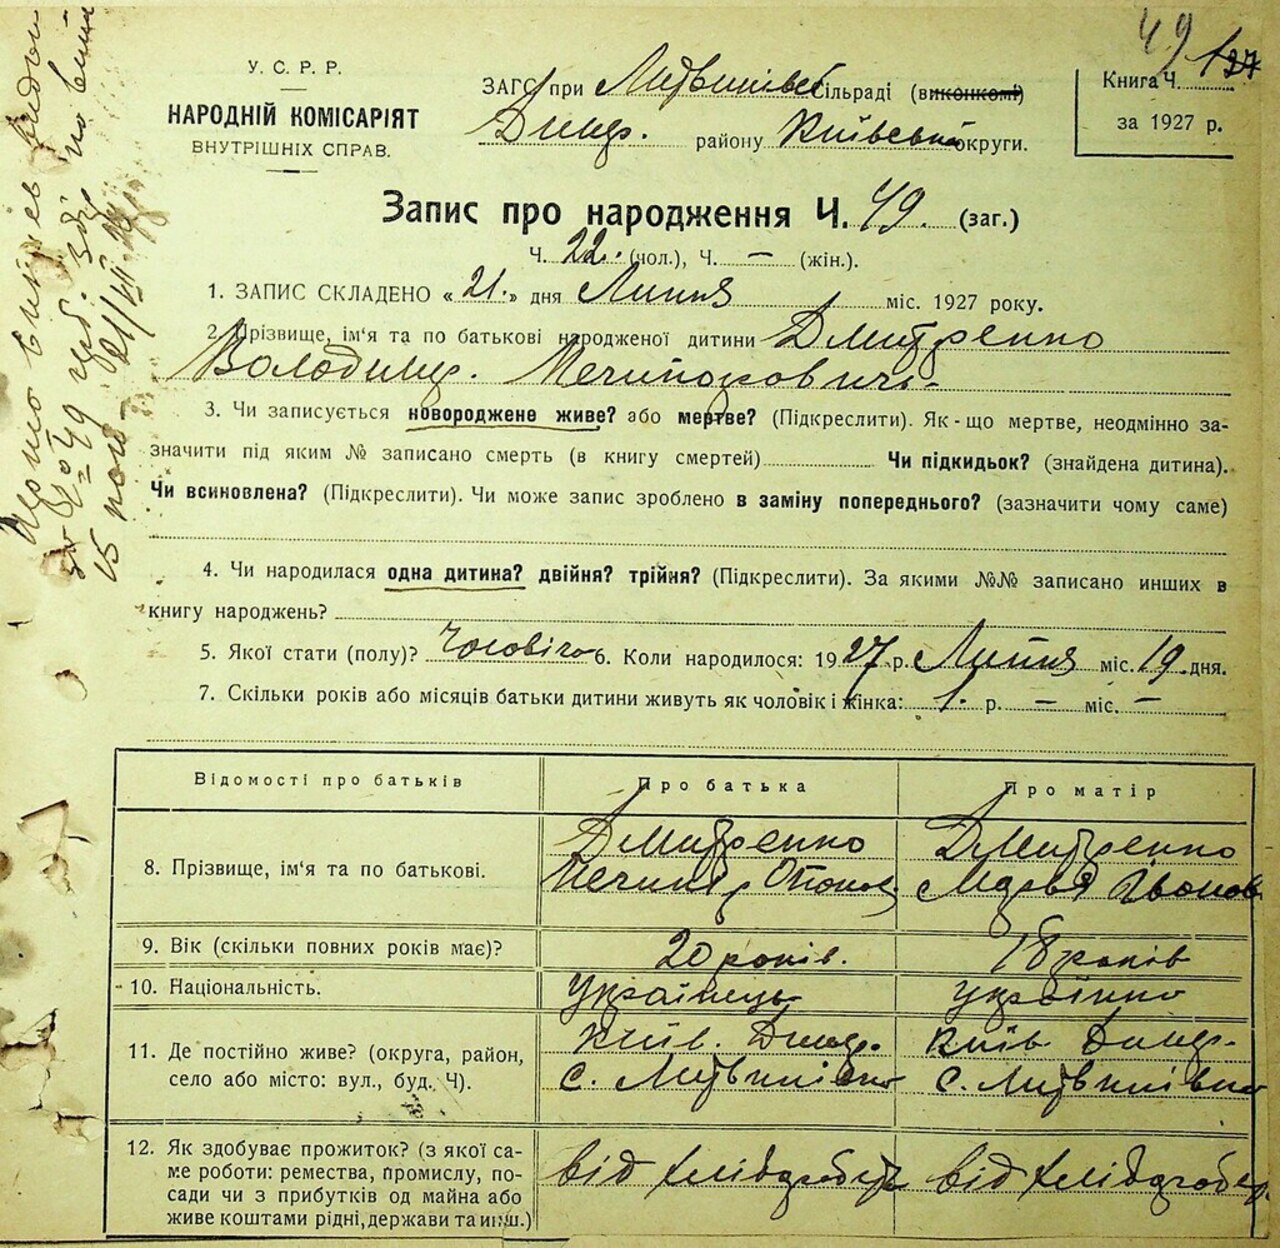 49 127
У. С. Р. Р.
НАРОДНІЙ КОМІСАРІЯТ
ВНУТРІШНІХ СПРАВ.
ЗАГС при Литвинівс Сільраді (виконкомі)
Димр. району Київській округи.
Книга Ч.
за 1927 р.
Запис про народження Ч. 49. (заг.)
Ч. 22. (чол.), Ч. — (жін.).
1. ЗАПИС СКЛАДЕНО « 21. » дня Липня міс. 1927 року.
2. Прізвище, ім'я та по батькові народженої дитини Дмитренко
Володимир.
3. Чи записується новороджене живе? або мертве? (Підкреслити). Як-що мертве, неодмінно за-
значити під яким № записано смерть (в книгу смертей) Чи підкидьок? (знайдена дитина).
Чи всиновлена? (Підкреслити). Чи може запис зроблено в заміну попереднього? (зазначити чому саме)
4. Чи народилася одна дитина? двійня? трійня? (Підкреслити). За якими №№ записано инших в
книгу народжень?
5. Якої стати (полу)? Чоловіча 6. Коли народилося: 1927 р. Липня міс. 19 дня.
7. Скільки років або місяців батьки дитини живуть як чоловік і жінка: 1. р. — міс. —
Відомості про батьків Про батька Про матір
8. Прізвище, ім'я та по батькові. Дмитренко Дмитренко
9. Вік (скільки повних років має)? 20 років. 18 років
10. Національність. Українець Українка
11. Де постійно живе? (округа, район, село або місто: вул., буд. Ч). Київ. Димер. Київ Димер.
с. Литвинівка с. Литвинівка
12. Як здобуває прожиток? (з якої са-
ме роботи: ремества, промислу, по-
сади чи з прибутків од майна або
живе коштами рідні, держави та инш.)
від хлібороб від хлібороб